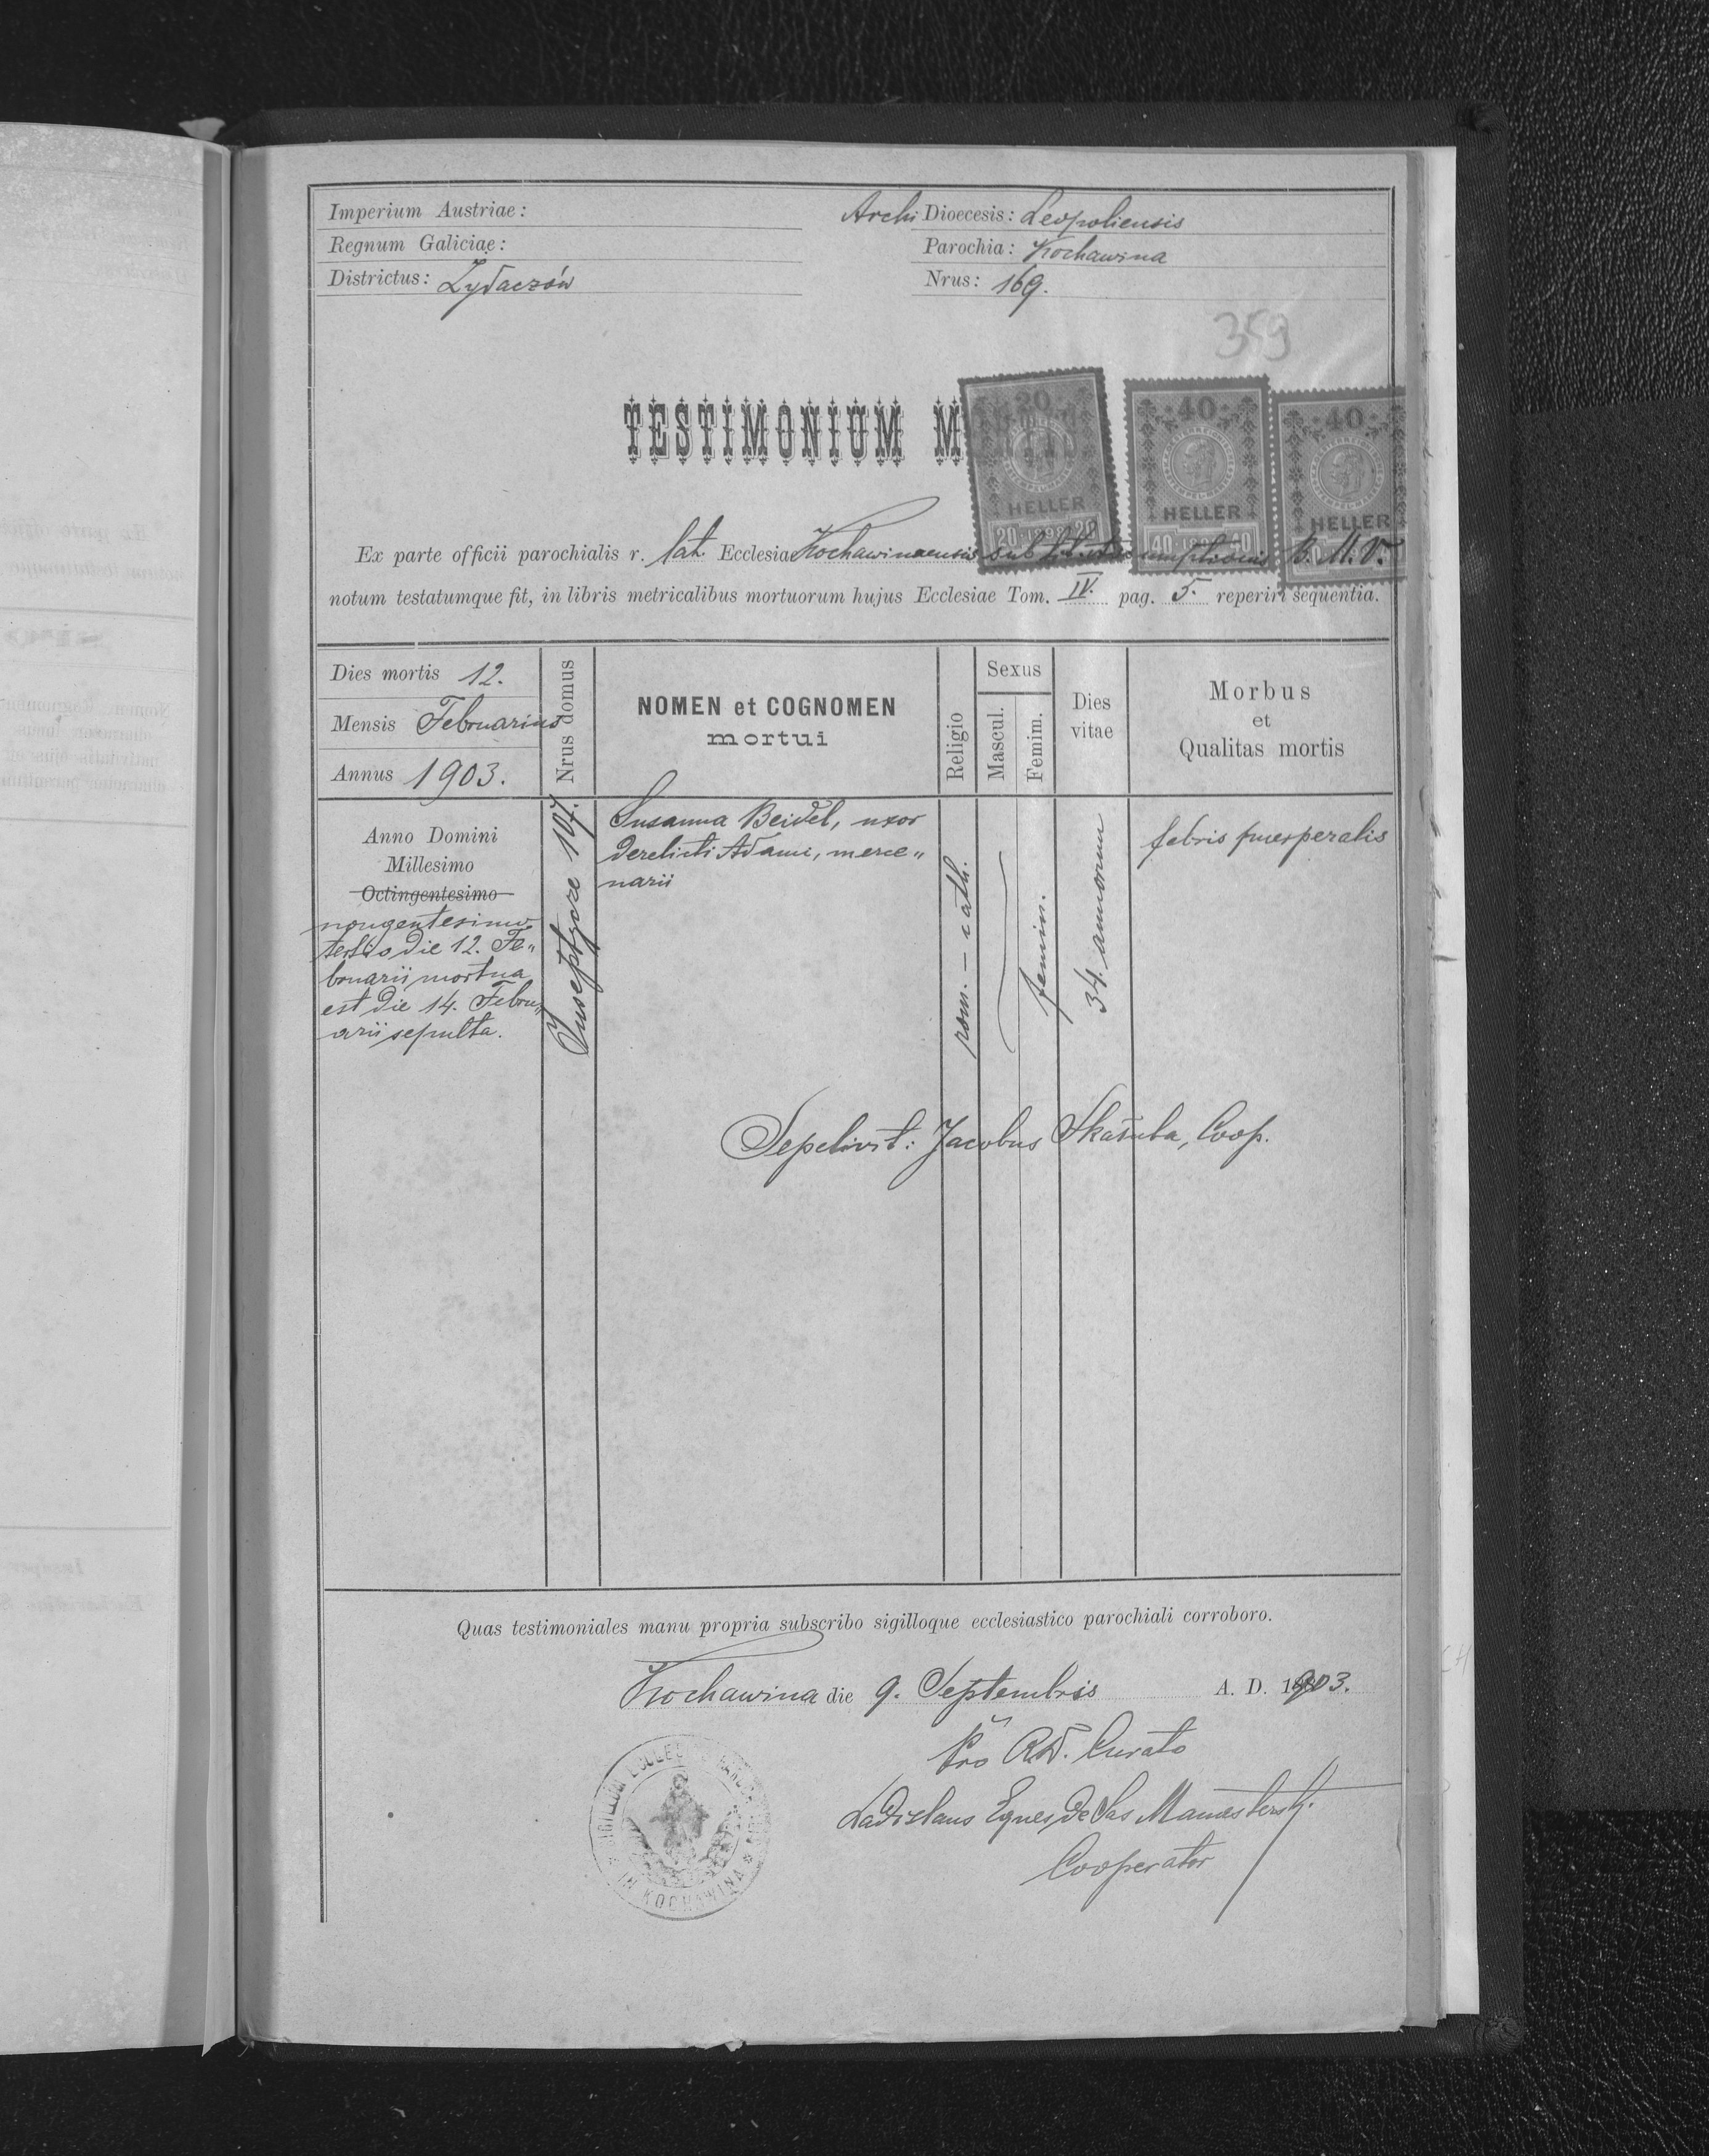 Imperium Austriae:
Regnum Galiciae:
Districtus: Żydaczów
Archi Dioecesis: Leopoliensis
Parochia: Kochawina
Nrus: 169.
359
TESTIMONIUM MORTIS
20 HELLER 20 20
40 HELLER 40 40
40 HELLER
Ex parte officii parochialis r. lat. Ecclesiae Kochawinaensis sub tit. Assumptionis B. M. V.
notum testatumque fit, in libris metricalibus mortuorum hujus Ecclesiae Tom. IV. pag. 5. reperiri sequentia.
Dies mortis 12.
Mensis Februarius
Annus 1903.
Nrus domus
NOMEN et COGNOMEN
mortui
Religio
Sexus
Mascul.
Femim.
Dies
vitae
Morbus
et
Qualitas mortis
Anno Domini
Millesimo
Octingentesimo
nongentesimo
tertio die 12. Fe„
bruarii mortua
est die 14. Febru„
arii sepulta.
107.
Susanna Beidel, uxor
derelicti Adami, merce„
narii
rom. - cath.
femin.
34. annorum
febris puerperalis
Sepelivit: Jacobus Skałuba, Coop.
Quas testimoniales manu propria subscribo sigilloque ecclesiastico parochiali corroboro.
Kochawina die 9. Septembris A. D. 1903.
Pro RD. Curato
Ladislaus Eques de Sas Manastersky
Cooperator
SIGILLUM ECCLE
IN KOCHAWINA